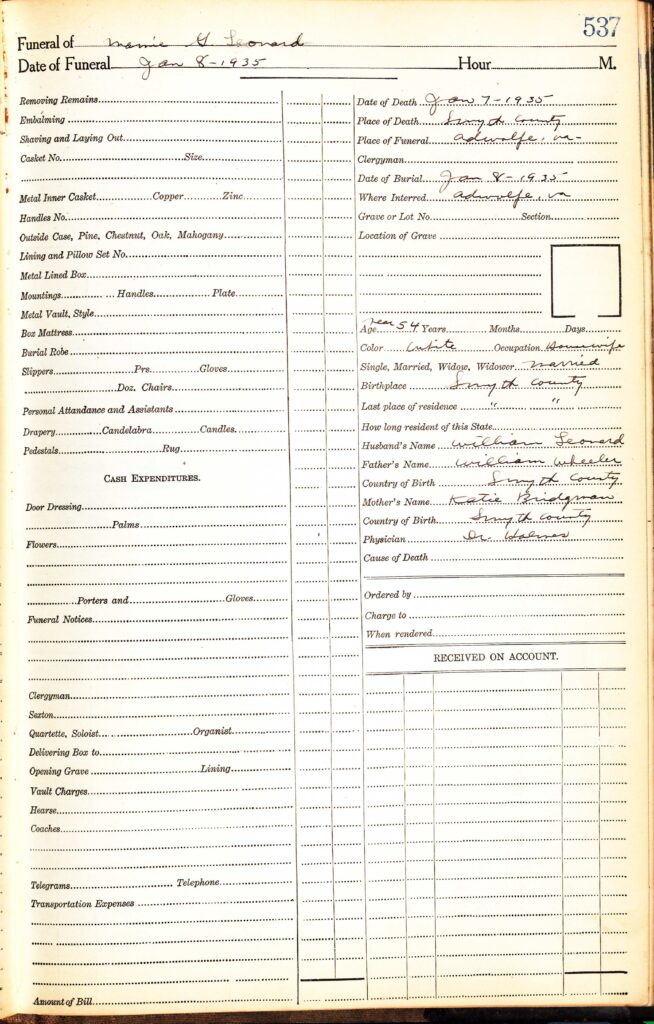 537
Funeral of Mamie G. Leonard
Date of Funeral Jan 8-1935 Hour M.
Removing Remains
Embalming
Shaving and Laying Out
Casket No. Size
Metal Inner Casket Copper Zinc
Handles No.
Outside Case, Pine, Chestnut, Oak, Mahogany
Lining and Pillow Set No.
Metal Lined Box
Mountings Handles Plate
Metal Vault, Style
Box Mattress
Burial Robe
Slippers Prs. Gloves
Doz. Chairs
Personal Attandance and Assistants
Drapery Candelabra Candles
Pedestals Rug
CASH EXPENDITURES.
Door Dressing
Palms
Flowers
Porters and Gloves
Funeral Notices
Clergyman
Sexton
Quartette, Soloist Organist
Delivering Box to
Opening Grave Lining
Vault Charges
Hearse
Coaches
Telegrams Telephone
Transportation Expenses
Amount of Bill
Date of Death Jan 7-1935
Place of Death Smyth County
Place of Funeral Adwolfe, va-
Clergyman
Date of Burial Jan 8-1935
Where Interred Adwolfe, va
Grave or Lot No. Section
Location of Grave
Age near 54 Years Months Days
Color White Occupation Housewife
Single, Married, Widow, Widower married
Birthplace Smyth County
Last place of residence " "
How long resident of this State
Husband's Name William Leonard
Father's Name William Wheeler
Country of Birth Smyth County
Mother's Name Katie Bridgman
Country of Birth Smyth County
Physician Dr. Holmes
Cause of Death
Ordered by
Charge to
When rendered
RECEIVED ON ACCOUNT.